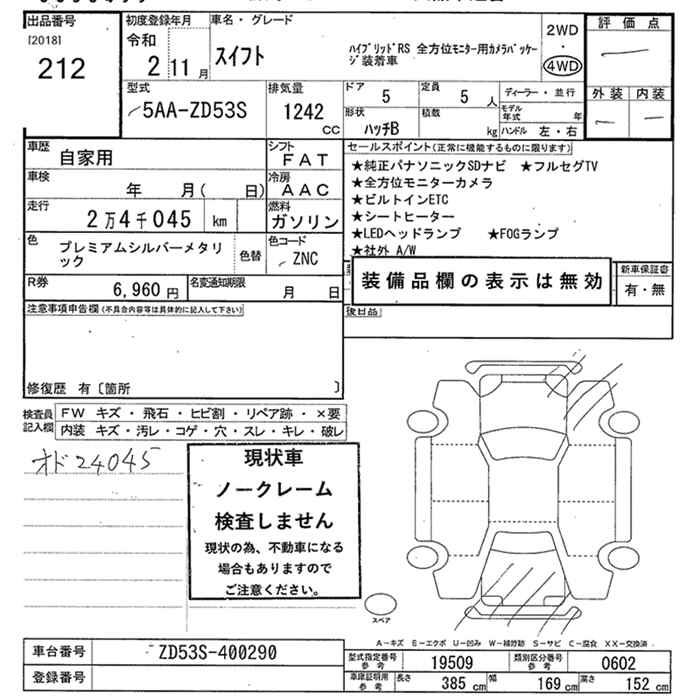 出品番号 初度登録年月 車名・グレード 評価点
[2018] 令和 2WD
212 2 11月 スイフト ハイブリッドRS 全方位モニター用カメラパッケージ装着車 ・ 4WD
外装 内装
型式 排気量 ドア 定員 ディーラー・並行
5AA-ZD53S 1242 5 5人 モデル年式 年
cc 形状 ハッチB 積載 kg ハンドル 左・右
車歴 自家用 シフト FAT セールスポイント(正常に機能するものに限ります)
車検 年 月( 日) 冷房 AAC
走行 2万4千045 km 燃料 ガソリン
★純正パナソニックSDナビ ★フルセグTV
★全方位モニターカメラ
★ビルトインETC
★シートヒーター
★LEDヘッドランプ ★FOGランプ
★社外 A/W
色 プレミアムシルバーメタリック 色替 色コード ZNC
装備品欄の表示は無効 新車保証書
有・無
R券 6,960円 名変通知期限 月 日
注意事項申告欄(不具合内容等は具体的に記入して下さい) 後日品
修復歴 有〔箇所 〕
検査員記入欄 FW キズ・飛石・ヒビ割・リペア跡・×要
内装 キズ・汚レ・コゲ・穴・スレ・キレ・破レ
オド24045
現状車
ノークレーム
検査しません
現状の為、不動車になる
場合もありますので
ご注意ください。
スペア
A-キズ E-エクボ U-凹み W-補修跡 S-サビ C-腐食 XX-交換済
車台番号 ZD53S-400290 型式指定番号 参考 19509 類別区分番号 参考 0602
登録番号 車庫証明用 参考 長さ 385cm 幅 169cm 高さ 152cm